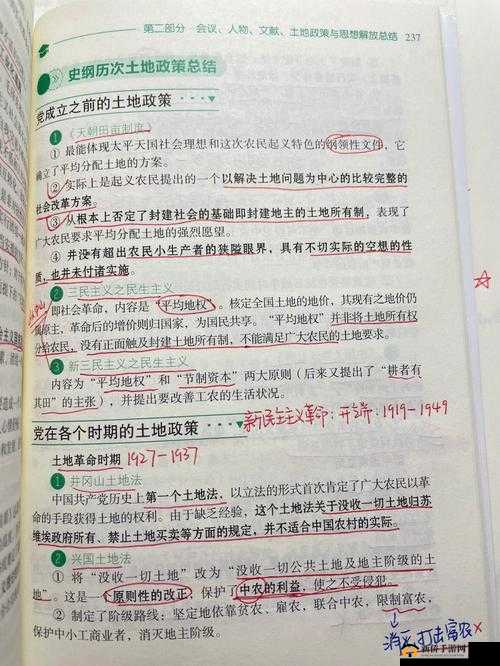 第二部分 会议、人物、文献、土地政策与思想解放总结 237
史纲历次土地政策总结
党成立之前的土地政策
1 《天朝田亩制度》
① 最能体现太平天国社会理想和这次农民起义特色的纲领性文件，它
确立了平均分配土地的方案。
② 实际上是起义农民提出的一个以解决土地问题为中心的比较完整的
社会改革方案。
③ 从根本上否定了封建社会的基础即封建地主的土地所有制，表现了
广大农民要求平均分配土地的强烈愿望。
④ 并没有超出农民小生产者的狭隘眼界，具有不切实际的空想的性
质，也并未付诸实施。
2 三民主义之民生主义
即社会革命，内容是“平均地权”。核定全国土地的地价，其现有之地价仍
属原主，革命后的增价则归国家，为国民共享。“平均地权”并非将土地所有权
分给农民，没有正面触及封建土地所有制，不能满足广大农民的土地要求。
3 新三民主义之民生主义
内容为“平均地权”和“节制资本”两大原则（后来又提出了“耕者有
其田”的主张），并提出要改善工农的生活状况。
党在各个时期的土地政策
新民主主义革命：开端：1919-1949
土地革命时期 1927-1937
1 井冈山土地法
中国共产党历史上第一个土地法，以立法的形式首次肯定了广大农民以革
命的手段获得土地的权利。由于缺乏经验，这个土地法关于没收一切土地归苏
维埃政府所有、禁止土地买卖等方面的规定，并不适合中国农村的实际。
2 兴国土地法
① 将“没收一切土地”改为“没收一切公共土地及地主阶级的土
地”。这是一个原则性的改正，保护了中农的利益，使之不受侵犯。
② 制定了阶级路线：坚定地依靠贫农、雇农，联合中农，限制富农，
保护中小工商业者，消灭地主阶级。
消灭、打击富农×